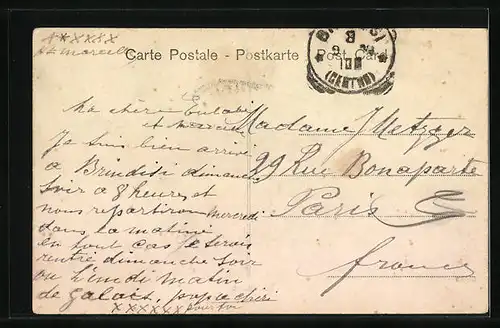 xxxxxx
Carte Postale - Postkarte - Post Card
(CENTRO)
Ma chère Eulalie
et
Je suis bien arrivé
à Brindisi dimanche
soir à 8 heures et
nous repartirons mercredi
dans la matiné
en tout cas je serais
rentré dimanche soir
ou lundi matin
de Galatz, papa chéri
xxxxxx pour toi
Madame Metzger
29 Rue Bonaparte
Paris
france